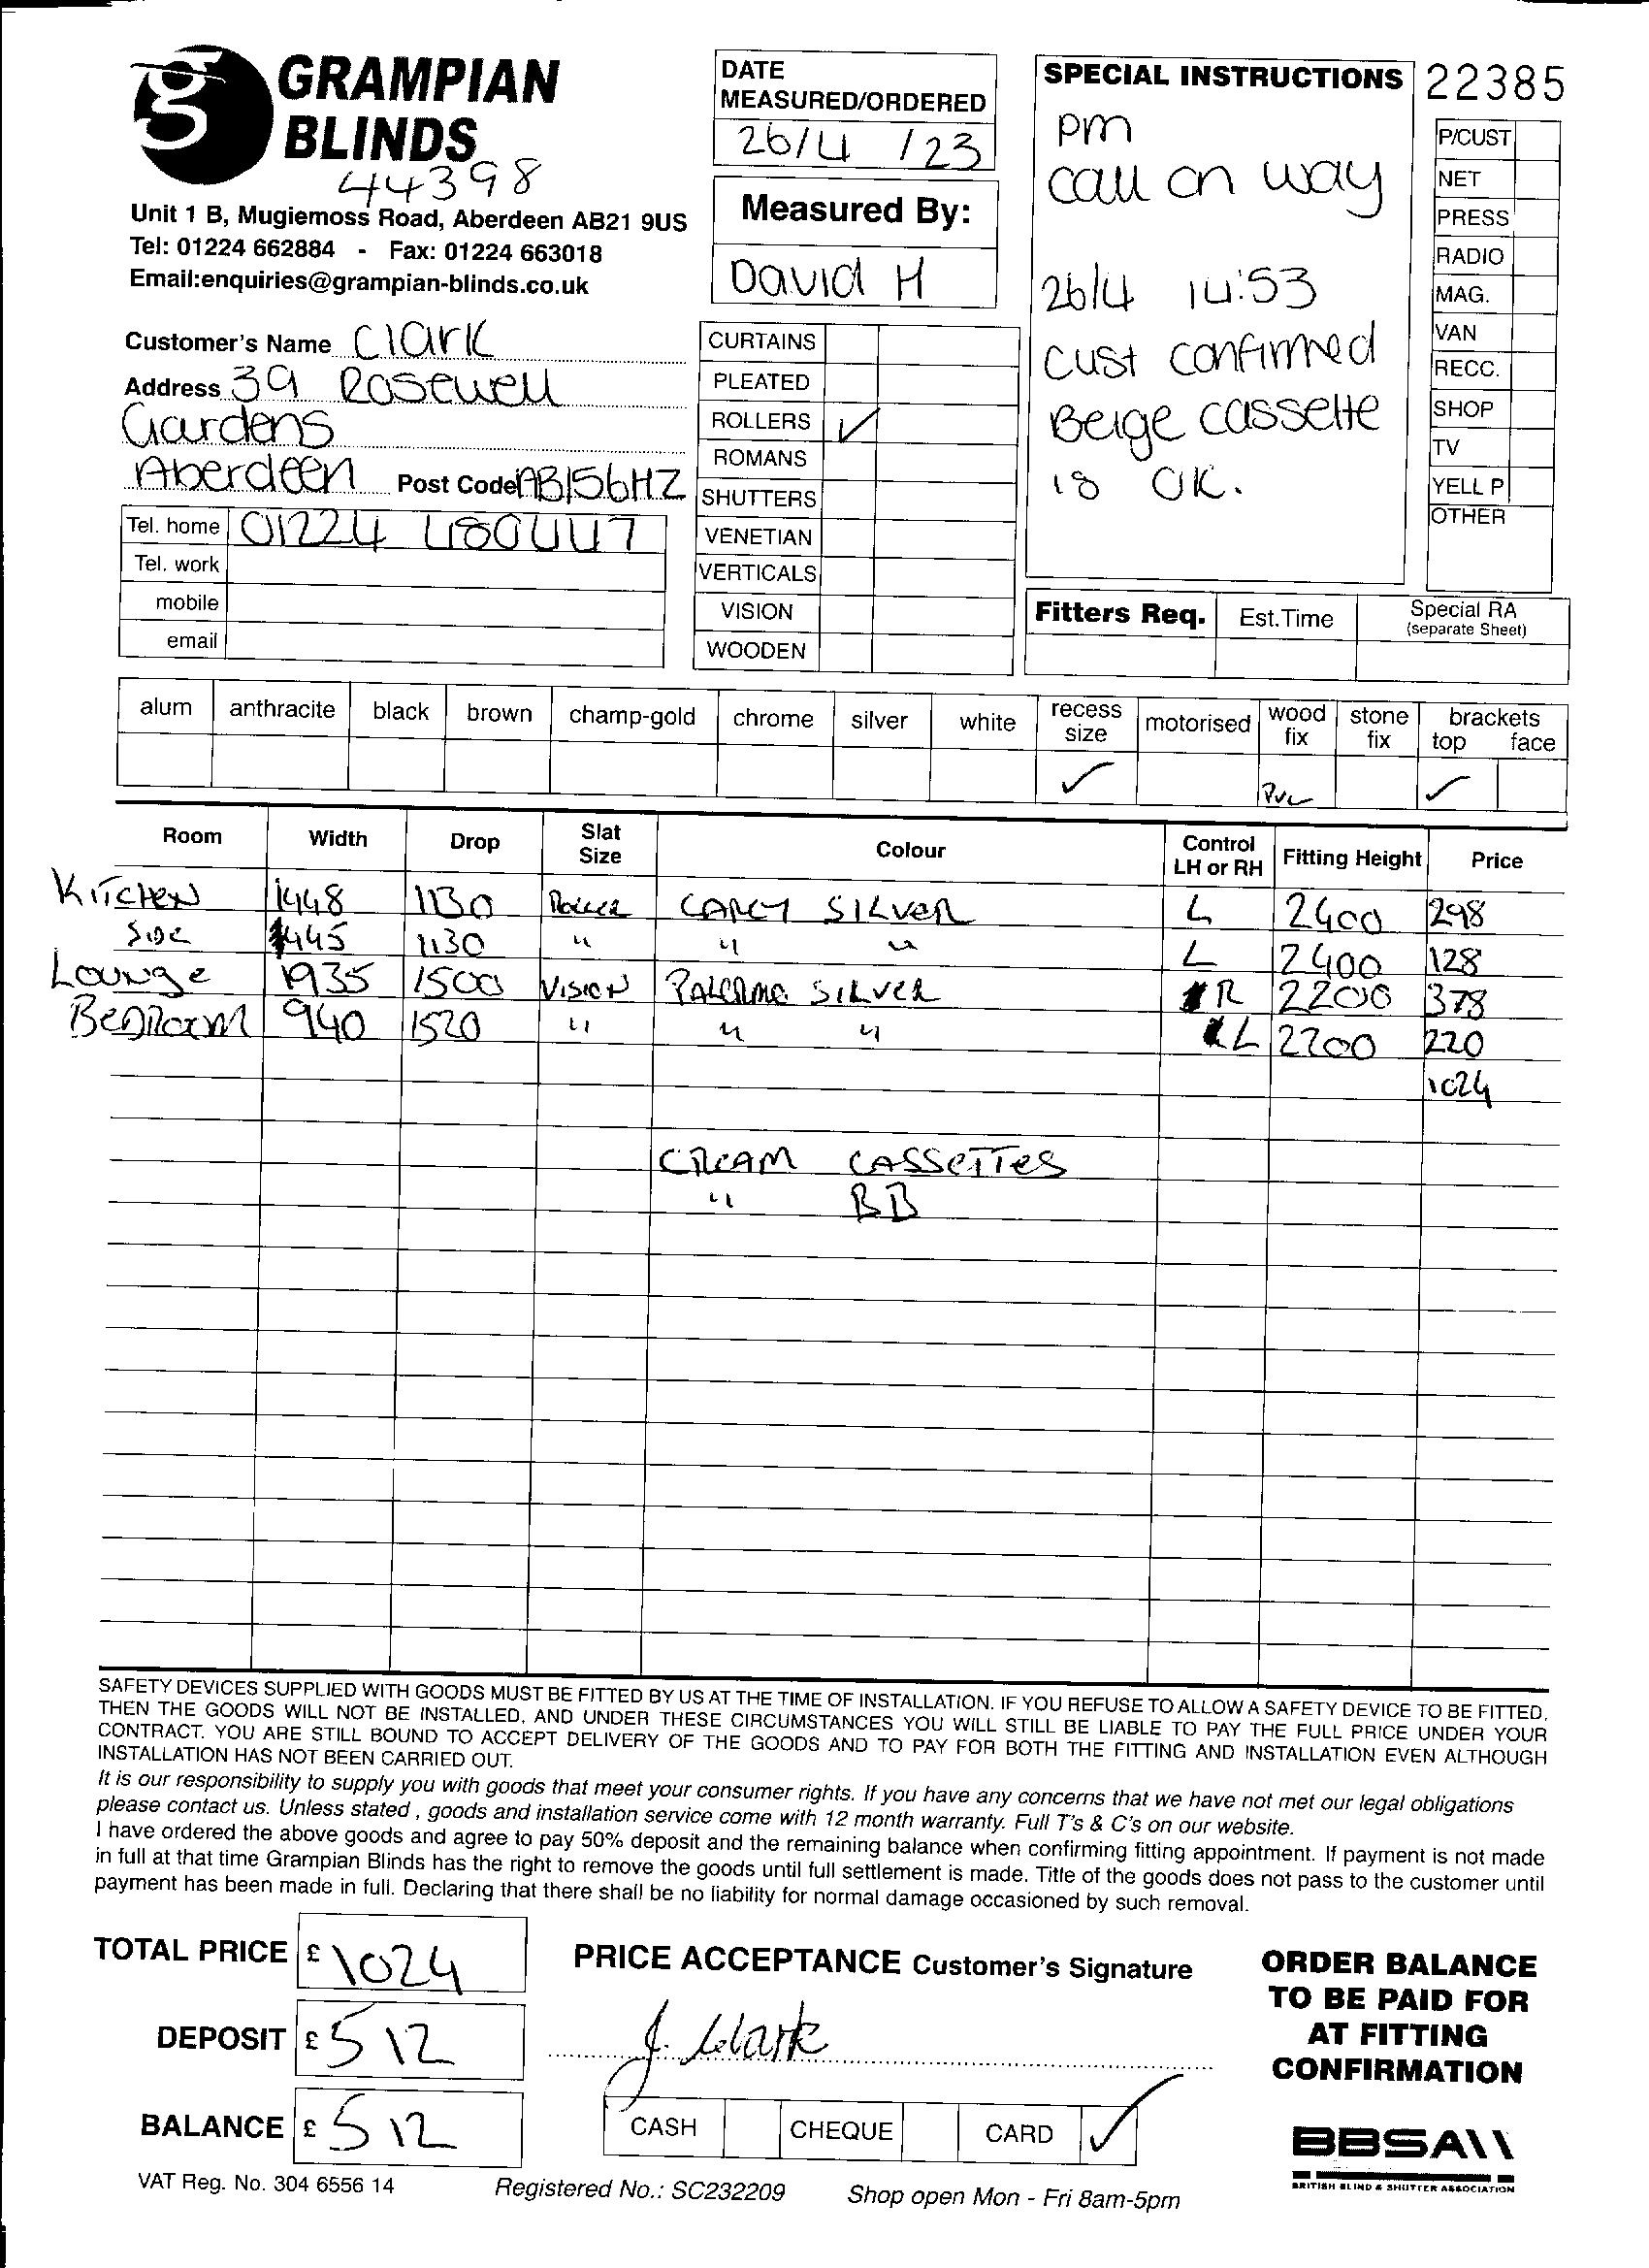 GRAMPIAN
BLINDS
44398
Unit 1 B, Mugiemoss Road, Aberdeen AB21 9US
Tel: 01224 662884 - Fax: 01224 663018
Email:enquiries@grampian-blinds.co.uk
DATE
MEASURED/ORDERED
26/4 /23
Measured By:
David H
SPECIAL INSTRUCTIONS
pm
call on way
26/4 14:53
Cust confirmed
Beige cassette
is OK.
22385
P/CUST
NET
PRESS
RADIO
MAG.
VAN
RECC.
SHOP
TV
YELL P
OTHER
Customer's Name Clark
Address 39 Rosewell
Gardens
Aberdeen Post Code AB156HZ
Tel. home 01224 480447
Tel. work
mobile
email
CURTAINS
PLEATED
ROLLERS ✓
ROMANS
SHUTTERS
VENETIAN
VERTICALS
VISION
WOODEN
Fitters Req. Est.Time Special RA
(separate Sheet)
alum anthracite black brown champ-gold chrome silver white recess size motorised wood fix stone fix brackets top face
✓ PVC ✓
Room Width Drop Slat Size Colour Control LH or RH Fitting Height Price
KITCHEN 1448 1130 ROLLER CAREY SILVER L 2400 298
SIDE 445 1130 " " " L 2400 128
LOUNGE 1935 1500 VISION PALERMO SILVER R 2200 378
BEDROOM 940 1520 " " " L 2200 220
1024
CREAM CASSETTES
" BB
SAFETY DEVICES SUPPLIED WITH GOODS MUST BE FITTED BY US AT THE TIME OF INSTALLATION. IF YOU REFUSE TO ALLOW A SAFETY DEVICE TO BE FITTED,
THEN THE GOODS WILL NOT BE INSTALLED, AND UNDER THESE CIRCUMSTANCES YOU WILL STILL BE LIABLE TO PAY THE FULL PRICE UNDER YOUR
CONTRACT. YOU ARE STILL BOUND TO ACCEPT DELIVERY OF THE GOODS AND TO PAY FOR BOTH THE FITTING AND INSTALLATION EVEN ALTHOUGH
INSTALLATION HAS NOT BEEN CARRIED OUT.
It is our responsibility to supply you with goods that meet your consumer rights. If you have any concerns that we have not met our legal obligations
please contact us. Unless stated , goods and installation service come with 12 month warranty. Full T's & C's on our website.
I have ordered the above goods and agree to pay 50% deposit and the remaining balance when confirming fitting appointment. If payment is not made
in full at that time Grampian Blinds has the right to remove the goods until full settlement is made. Title of the goods does not pass to the customer until
payment has been made in full. Declaring that there shall be no liability for normal damage occasioned by such removal.
TOTAL PRICE £ 1024
DEPOSIT £ 512
BALANCE £ 512
PRICE ACCEPTANCE Customer's Signature
J. Clark
CASH CHEQUE CARD ✓
ORDER BALANCE
TO BE PAID FOR
AT FITTING
CONFIRMATION
BBSA
BRITISH BLIND & SHUTTER ASSOCIATION
VAT Reg. No. 304 6556 14 Registered No.: SC232209 Shop open Mon - Fri 8am-5pm